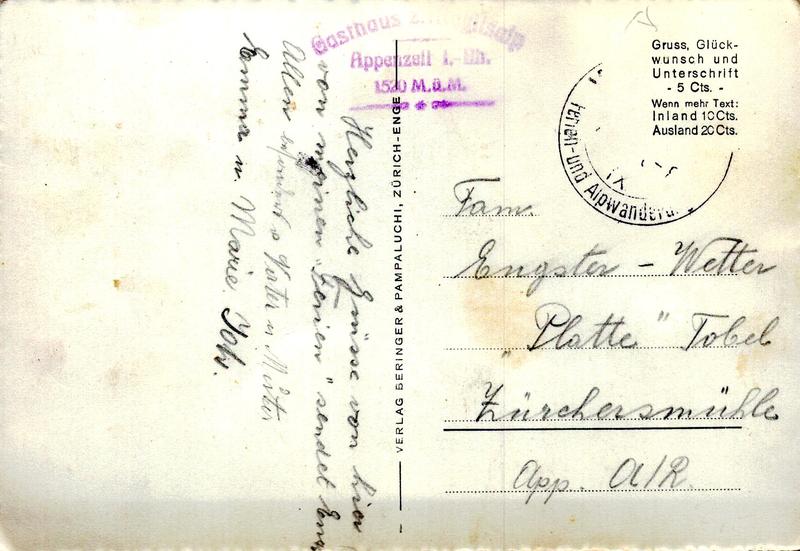 Gasthaus
Appenzell I.-Rh.
1520 M.ü.M.
Herzliche Grüsse von hier
von meinen "Ferien" sendet Euch
Allen Vater u. Mutter
Emma u. Marie. Joh.
VERLAG BERINGER & PAMPALUCHI, ZÜRICH-ENGE
Gruss, Glück-
wunsch und
Unterschrift
- 5 Cts. -
Wenn mehr Text:
Inland 10Cts.
Ausland 20Cts.
Ferien- und Alpwander
IX
Fam.
Engster - Wetter
"Platte" Tobel
Zürchersmühle
App. A/R.